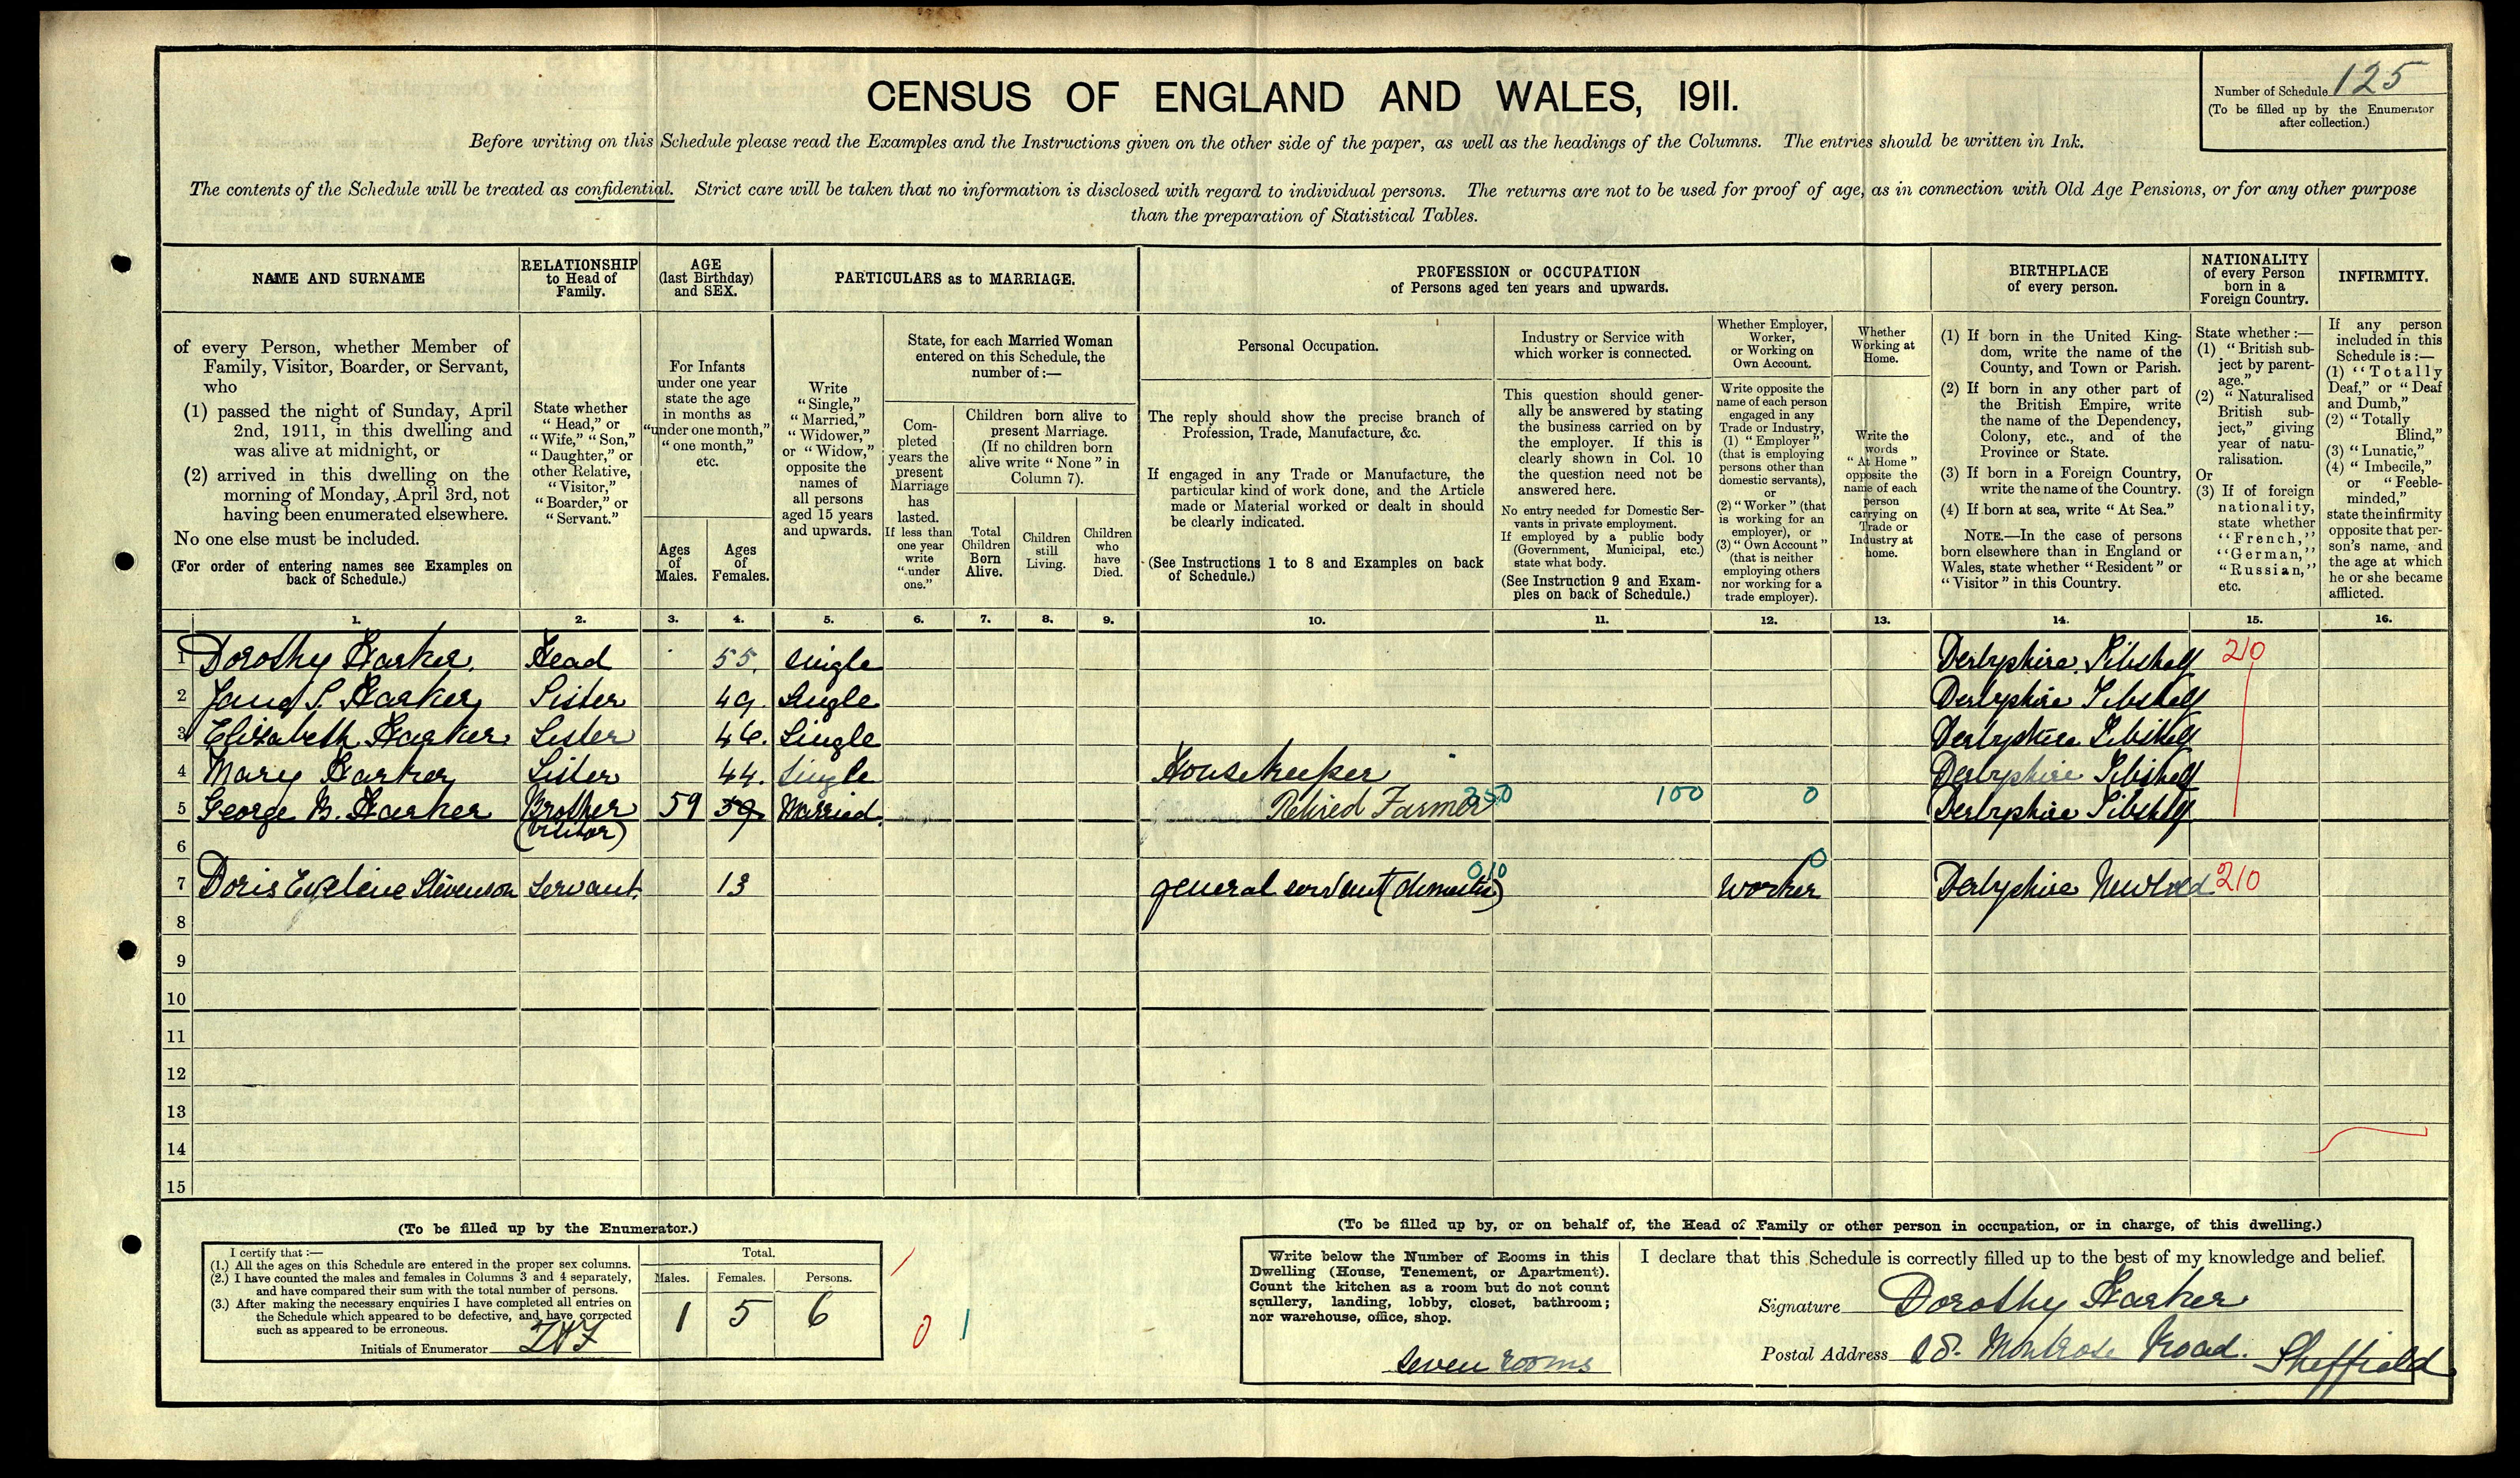 CENSUS OF ENGLAND AND WALES, 1911.
Number of Schedule 125
(To be filled up by the Enumerator
after collection.)
Before writing on this Schedule please read the Examples and the Instructions given on the other side of the paper, as well as the headings of the Columns. The entries should be written in Ink.
The contents of the Schedule will be treated as confidential. Strict care will be taken that no information is disclosed with regard to individual persons. The returns are not to be used for proof of age, as in connection with Old Age Pensions, or for any other purpose
than the preparation of Statistical Tables.
NAME AND SURNAME
of every Person, whether Member of
Family, Visitor, Boarder, or Servant,
who
(1) passed the night of Sunday, April
2nd, 1911, in this dwelling and
was alive at midnight, or
(2) arrived in this dwelling on the
morning of Monday, April 3rd, not
having been enumerated elsewhere.
No one else must be included.
(For order of entering names see Examples on
back of Schedule.)
RELATIONSHIP
to Head of
Family.
State whether
"Head," or
"Wife," "Son,"
"Daughter," or
other Relative,
"Visitor,"
"Boarder," or
"Servant."
AGE
(last Birthday)
and SEX.
For Infants
under one year
state the age
in months as
"under one month,"
"one month,"
etc.
Ages
of
Males.
Ages
of
Females.
PARTICULARS as to MARRIAGE.
Write
"Single,"
"Married,"
"Widower,"
or "Widow,"
opposite the
names of
all persons
aged 15 years
and upwards.
State, for each Married Woman
entered on this Schedule, the
number of:—
Com-
pleted
years the
present
Marriage
has
lasted.
If less than
one year
write
"under
one."
Children born alive to
present Marriage.
(If no children born
alive write "None" in
Column 7).
Total
Children
Born
Alive.
Children
still
Living.
Children
who
have
Died.
PROFESSION or OCCUPATION
of Persons aged ten years and upwards.
Personal Occupation.
The reply should show the precise branch of
Profession, Trade, Manufacture, &c.
If engaged in any Trade or Manufacture, the
particular kind of work done, and the Article
made or Material worked or dealt in should
be clearly indicated.
(See Instructions 1 to 8 and Examples on back
of Schedule.)
Industry or Service with
which worker is connected.
This question should gener-
ally be answered by stating
the business carried on by
the employer. If this is
clearly shown in Col. 10
the question need not be
answered here.
No entry needed for Domestic Ser-
vants in private employment.
If employed by a public body
(Government, Municipal, etc.)
state what body.
(See Instruction 9 and Exam-
ples on back of Schedule.)
Whether Employer,
Worker,
or Working on
Own Account.
Write opposite the
name of each person
engaged in any
Trade or Industry,
(1) "Employer"
(that is employing
persons other than
domestic servants),
or
(2) "Worker" (that
is working for an
employer), or
(3) "Own Account"
(that is neither
employing others
nor working for a
trade employer).
Whether
Working at
Home.
Write the
words
"At Home"
opposite the
name of each
person
carrying on
Trade or
Industry at
home.
BIRTHPLACE
of every person.
(1) If born in the United King-
dom, write the name of the
County, and Town or Parish.
(2) If born in any other part of
the British Empire, write
the name of the Dependency,
Colony, etc., and of the
Province or State.
(3) If born in a Foreign Country,
write the name of the Country.
(4) If born at sea, write "At Sea."
NOTE.—In the case of persons
born elsewhere than in England or
Wales, state whether "Resident" or
"Visitor" in this Country.
NATIONALITY
of every Person
born in a
Foreign Country.
State whether:—
(1) "British sub-
ject by parent-
age."
(2) "Naturalised
British sub-
ject," giving
year of natu-
ralisation.
Or
(3) If of foreign
nationality,
state whether
"French,"
"German,"
"Russian,"
etc.
INFIRMITY.
If any person
included in this
Schedule is:—
(1) "Totally
Deaf," or "Deaf
and Dumb,"
(2) "Totally
Blind,"
(3) "Lunatic,"
(4) "Imbecile,"
or "Feeble-
minded,"
state the infirmity
opposite that per-
son's name, and
the age at which
he or she became
afflicted.
1. 2. 3. 4. 5. 6. 7. 8. 9. 10. 11. 12. 13. 14. 15. 16.
1 Dorothy Harker. Head 55. Single Derbyshire. Tibshelf 210
2 Jane S. Harker Sister 49. Single Derbyshire Tibshelf
3 Elizabeth Harker Sister 46. Single Derbyshire Tibshelf
4 Mary Harker Sister 44. Single Housekeeper Derbyshire Tibshelf
5 George B. Harker Brother 59 59 Married. Retired Farmer 350 100 0 Derbyshire Tibshelf
(Visitor)
6
7 Doris Eveline Stevenson Servant. 13 general servant (domestic) 010 Worker 0 Derbyshire Newbold 210
8
9
10
11
12
13
14
15
(To be filled up by the Enumerator.)
I certify that:—
(1.) All the ages on this Schedule are entered in the proper sex columns.
(2.) I have counted the males and females in Columns 3 and 4 separately,
and have compared their sum with the total number of persons.
(3.) After making the necessary enquiries I have completed all entries on
the Schedule which appeared to be defective, and have corrected
such as appeared to be erroneous.
Initials of Enumerator
Total.
Males. Females. Persons.
1 5 6
0 1
(To be filled up by, or on behalf of, the Head of Family or other person in occupation, or in charge, of this dwelling.)
Write below the Number of Rooms in this
Dwelling (House, Tenement, or Apartment).
Count the kitchen as a room but do not count
scullery, landing, lobby, closet, bathroom;
nor warehouse, office, shop.
seven rooms
I declare that this Schedule is correctly filled up to the best of my knowledge and belief.
Signature Dorothy Harker
Postal Address 28. Montrose Road. Sheffield